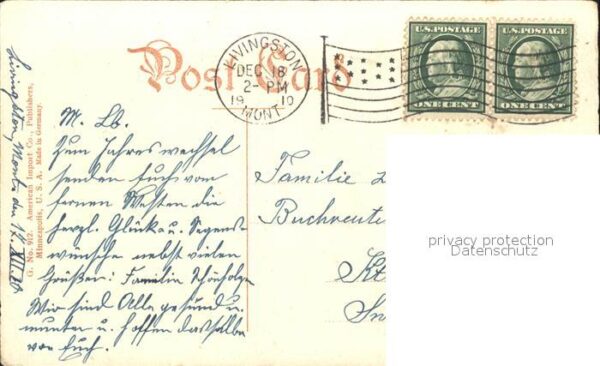 Post Card
LIVINGSTON
DEC 18
2-PM
1910
MONT.
U.S. POSTAGE
ONE CENT
U.S. POSTAGE
ONE CENT
M. Lb.
Zum Jahreswechsel
senden Euch vom
fernen Westen die
herzl. Glück u. Segens-
wünsche nebst vielen
Grüßen: Familie
Wir sind Alle gesund u.
munter u. hoffen dasselbe
von Euch.
Familie
Livingston, Mont. den XII. 10
G. No. 912. American Import Co., Publishers,
Minneapolis, U. S. A. Made in Germany
privacy protection
Datenschutz